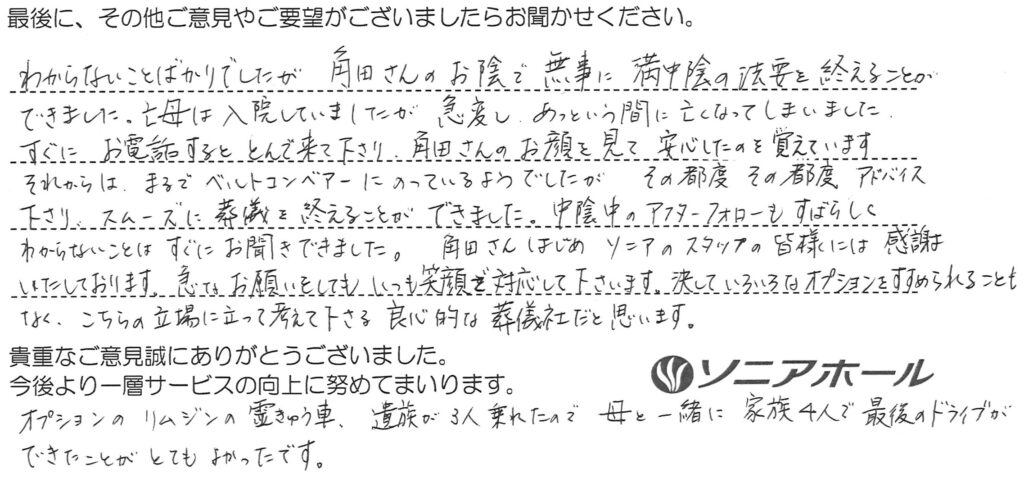 最後に、その他ご意見やご要望がございましたらお聞かせください。
わからないことばかりでしたが 角田さんのお陰で 無事に 満中陰の法要を終えることが
できました。亡母は入院していましたが 急変し、あっという間に亡くなってしまいました。
すぐに お電話すると とんで来て下さり、角田さんのお顔を見て 安心したのを覚えています
それからは、まるで ベルトコンベアーにのっているようでしたが その都度 その都度 アドバイス
下さり、スムーズに葬儀を終えることができました。中陰中のアフターフォローもすばらしく
わからないことは すぐにお聞きできました。 角田さんはじめ ソニアのスタッフの皆様には 感謝
いたしております。急なお願いをしても いつも笑顔で対応して下さいます。決していろいろなオプションをすすめられることも
なく、こちらの立場に立って考えて下さる 良心的な 葬儀社だと思います。
貴重なご意見誠にありがとうございました。
今後より一層サービスの向上に努めてまいります。
ソニアホール
オプションの リムジンの霊きゅう車、遺族が3人乗れたので 母と一緒に 家族4人で最後のドライブが
できたことが とても よかったです。